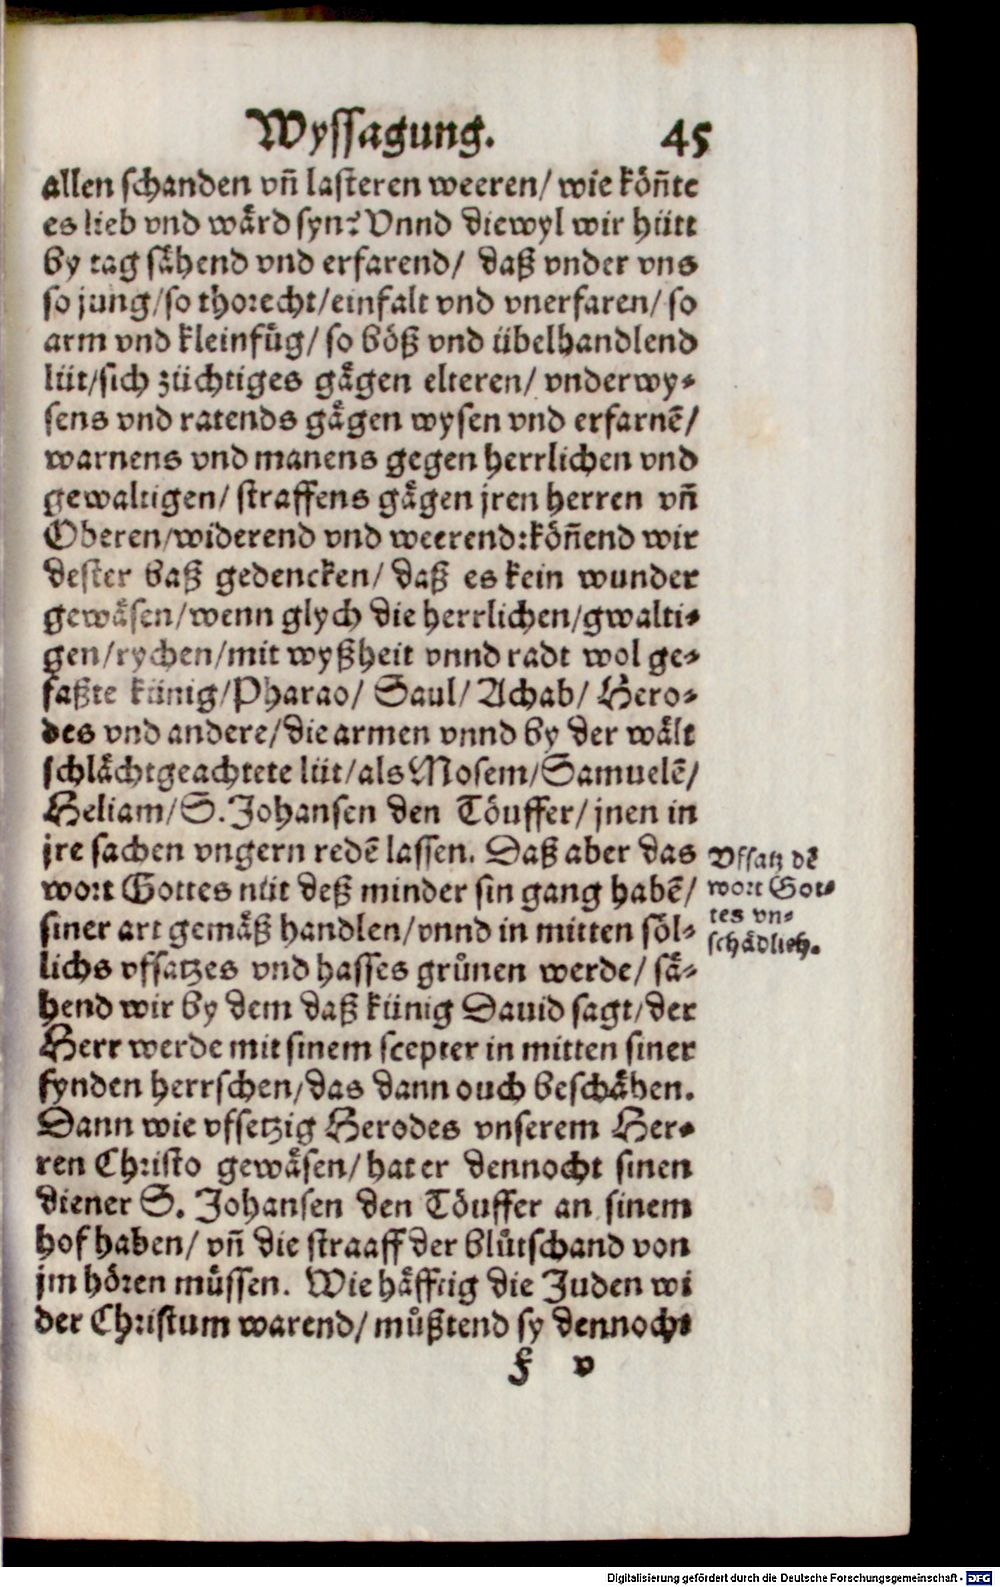 Wyssagung. 45
allen schanden vñ lasteren weeren/ wie köñte
es lieb vnd wärd syn? Vnnd diewyl wir hütt
by tag sähend vnd erfarend/ daß vnder vns
so jung/so thorecht/einfalt vnd vnerfaren/ so
arm vnd kleinfůg/ so böß vnd übelhandlend
lüt/sich züchtiges gägen elteren/ vnderwy-
sens vnd ratends gägen wysen vnd erfarnē/
warnens vnd manens gegen herrlichen vnd
gewaltigen/ straffens gägen jren herren vñ
Oberen/widerend vnd weerend:köñend wir
dester baß gedencken/ daß es kein wunder
gewäsen/wenn glych die herrlichen/gwalti-
gen/rychen/mit wyßheit vnnd radt wol ge-
faßte künig/Pharao/ Saul/ Achab/ Hero-
des vnd andere/die armen vnnd by der wält
schlächtgeachtete lüt/als Mosem/Samuelē/
Heliam/S.Johansen den Töuffer/ jnen in
jre sachen vngern redē lassen. Daß aber das
wort Gottes nüt deß minder sin gang habē/
siner art gemäß handlen/vnnd in mitten söl-
lichs vfsatzes vnd hasses grůnen werde/ sä-
hend wir by dem daß künig Dauid sagt/der
Herr werde mit sinem scepter in mitten siner
fynden herrschen/das dann ouch beschähen.
Dann wie vfsetzig Herodes vnserem Her-
ren Christo gewäsen/hat er dennocht sinen
diener S. Johansen den Töuffer an sinem
hof haben/ vñ die straaff der blůtschand von
jm hören müssen. Wie häfftig die Juden wi
der Christum warend/ můßtend sy dennocht
Vfsatz dē
wort Got-
tes vn-
schädlich.
F v
Digitalisierung gefördert durch die Deutsche Forschungsgemeinschaft - DFG